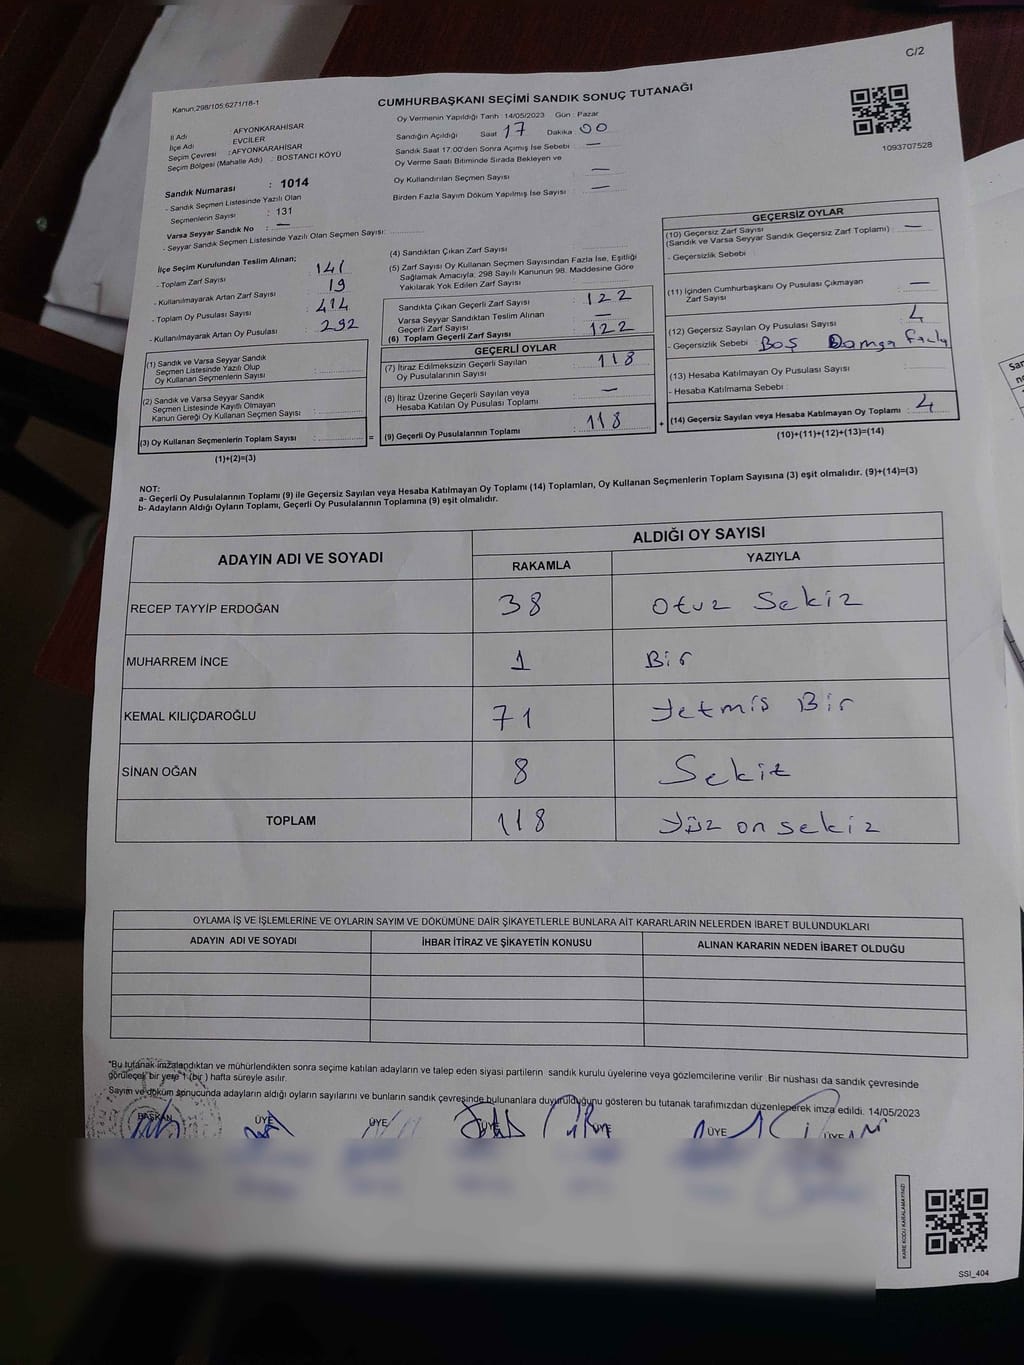 C/2
Kanun,298/105;6271/18-1
CUMHURBAŞKANI SEÇİMİ SANDIK SONUÇ TUTANAĞI
1093707528
İl Adı : AFYONKARAHİSAR
İlçe Adı : EVCİLER
Seçim Çevresi : AFYONKARAHİSAR
Seçim Bölgesi (Mahalle Adı) : BOSTANCI KÖYÜ
Sandık Numarası : 1014
- Sandık Seçmen Listesinde Yazılı Olan
Seçmenlerin Sayısı : 131
Varsa Seyyar Sandık No : —
- Seyyar Sandık Seçmen Listesinde Yazılı Olan Seçmen Sayısı:
Oy Vermenin Yapıldığı Tarih 14/05/2023 Gün : Pazar
Sandığın Açıldığı Saat 17 Dakika 00
Sandık Saat 17:00'den Sonra Açımış İse Sebebi : —
Oy Verme Saati Bitiminde Sırada Bekleyen ve
Oy Kullandırılan Seçmen Sayısı : —
Birden Fazla Sayım Döküm Yapılmış İse Sayısı : —
İlçe Seçim Kurulundan Teslim Alınan;
- Toplam Zarf Sayısı : 141
- Kullanılmayarak Artan Zarf Sayısı : 19
- Toplam Oy Pusulası Sayısı : 414
- Kullanılmayarak Artan Oy Pusulası : 292
(1) Sandık ve Varsa Seyyar Sandık
Seçmen Listesinde Yazılı Olup
Oy Kullanan Seçmenlerin Sayısı :
(2) Sandık ve Varsa Seyyar Sandık
Seçmen Listesinde Kayıtlı Olmayan
Kanun Gereği Oy Kullanan Seçmen Sayısı :
(3) Oy Kullanan Seçmenlerin Toplam Sayısı : =
(1)+(2)=(3)
(4) Sandıktan Çıkan Zarf Sayısı
(5) Zarf Sayısı Oy Kullanan Seçmen Sayısından Fazla İse, Eşitliği
Sağlamak Amacıyla; 298 Sayılı Kanunun 98. Maddesine Göre
Yakılarak Yok Edilen Zarf Sayısı :
Sandıkta Çıkan Geçerli Zarf Sayısı : 122
Varsa Seyyar Sandıktan Teslim Alınan
Geçerli Zarf Sayısı : —
(6) Toplam Geçerli Zarf Sayısı : 122
GEÇERLİ OYLAR
(7) İtiraz Edilmeksizin Geçerli Sayılan
Oy Pusulalarının Sayısı : 118
(8) İtiraz Üzerine Geçerli Sayılan veya
Hesaba Katılan Oy Pusulası Toplamı : —
(9) Geçerli Oy Pusulalarının Toplamı : 118 +
GEÇERSİZ OYLAR
(10) Geçersiz Zarf Sayısı
(Sandık ve Varsa Seyyar Sandık Geçersiz Zarf Toplamı) : —
- Geçersizlik Sebebi
(11) İçinden Cumhurbaşkanı Oy Pusulası Çıkmayan
Zarf Sayısı : —
(12) Geçersiz Sayılan Oy Pusulası Sayısı : 4
- Geçersizlik Sebebi Boş Damga Fazla
(13) Hesaba Katılmayan Oy Pusulası Sayısı :
- Hesaba Katılmama Sebebi :
(14) Geçersiz Sayılan veya Hesaba Katılmayan Oy Toplamı : 4
(10)+(11)+(12)+(13)=(14)
NOT:
a- Geçerli Oy Pusulalarının Toplamı (9) ile Geçersiz Sayılan veya Hesaba Katılmayan Oy Toplamı (14) Toplamları, Oy Kullanan Seçmenlerin Toplam Sayısına (3) eşit olmalıdır. (9)+(14)=(3)
b- Adayların Aldığı Oyların Toplamı, Geçerli Oy Pusulalarının Toplamına (9) eşit olmalıdır.
ADAYIN ADI VE SOYADI
ALDIĞI OY SAYISI
RAKAMLA YAZIYLA
RECEP TAYYİP ERDOĞAN 38 Otuz Sekiz
MUHARREM İNCE 1 Bir
KEMAL KILIÇDAROĞLU 71 Yetmis Bir
SİNAN OĞAN 8 Sekiz
TOPLAM 118 Yüz on sekiz
OYLAMA İŞ VE İŞLEMLERİNE VE OYLARIN SAYIM VE DÖKÜMÜNE DAİR ŞİKAYETLERLE BUNLARA AİT KARARLARIN NELERDEN İBARET BULUNDUKLARI
ADAYIN ADI VE SOYADI İHBAR İTİRAZ VE ŞİKAYETİN KONUSU ALINAN KARARIN NEDEN İBARET OLDUĞU
"Bu tutanak imzalandıktan ve mühürlendikten sonra seçime katılan adayların ve talep eden siyasi partilerin sandık kurulu üyelerine veya gözlemcilerine verilir .Bir nüshası da sandık çevresinde
görülecek bir yere 1 (bir ) hafta süreyle asılır.
Sayım ve döküm sonucunda adayların aldığı oyların sayılarını ve bunların sandık çevresinde bulunanlara duyurulduğunu gösteren bu tutanak tarafımızdan düzenlenerek imza edildi. 14/05/2023
BAŞKAN ÜYE ÜYE ÜYE ÜYE ÜYE ÜYE
KARE KODU KARALAMAYINIZ!
SSI_404